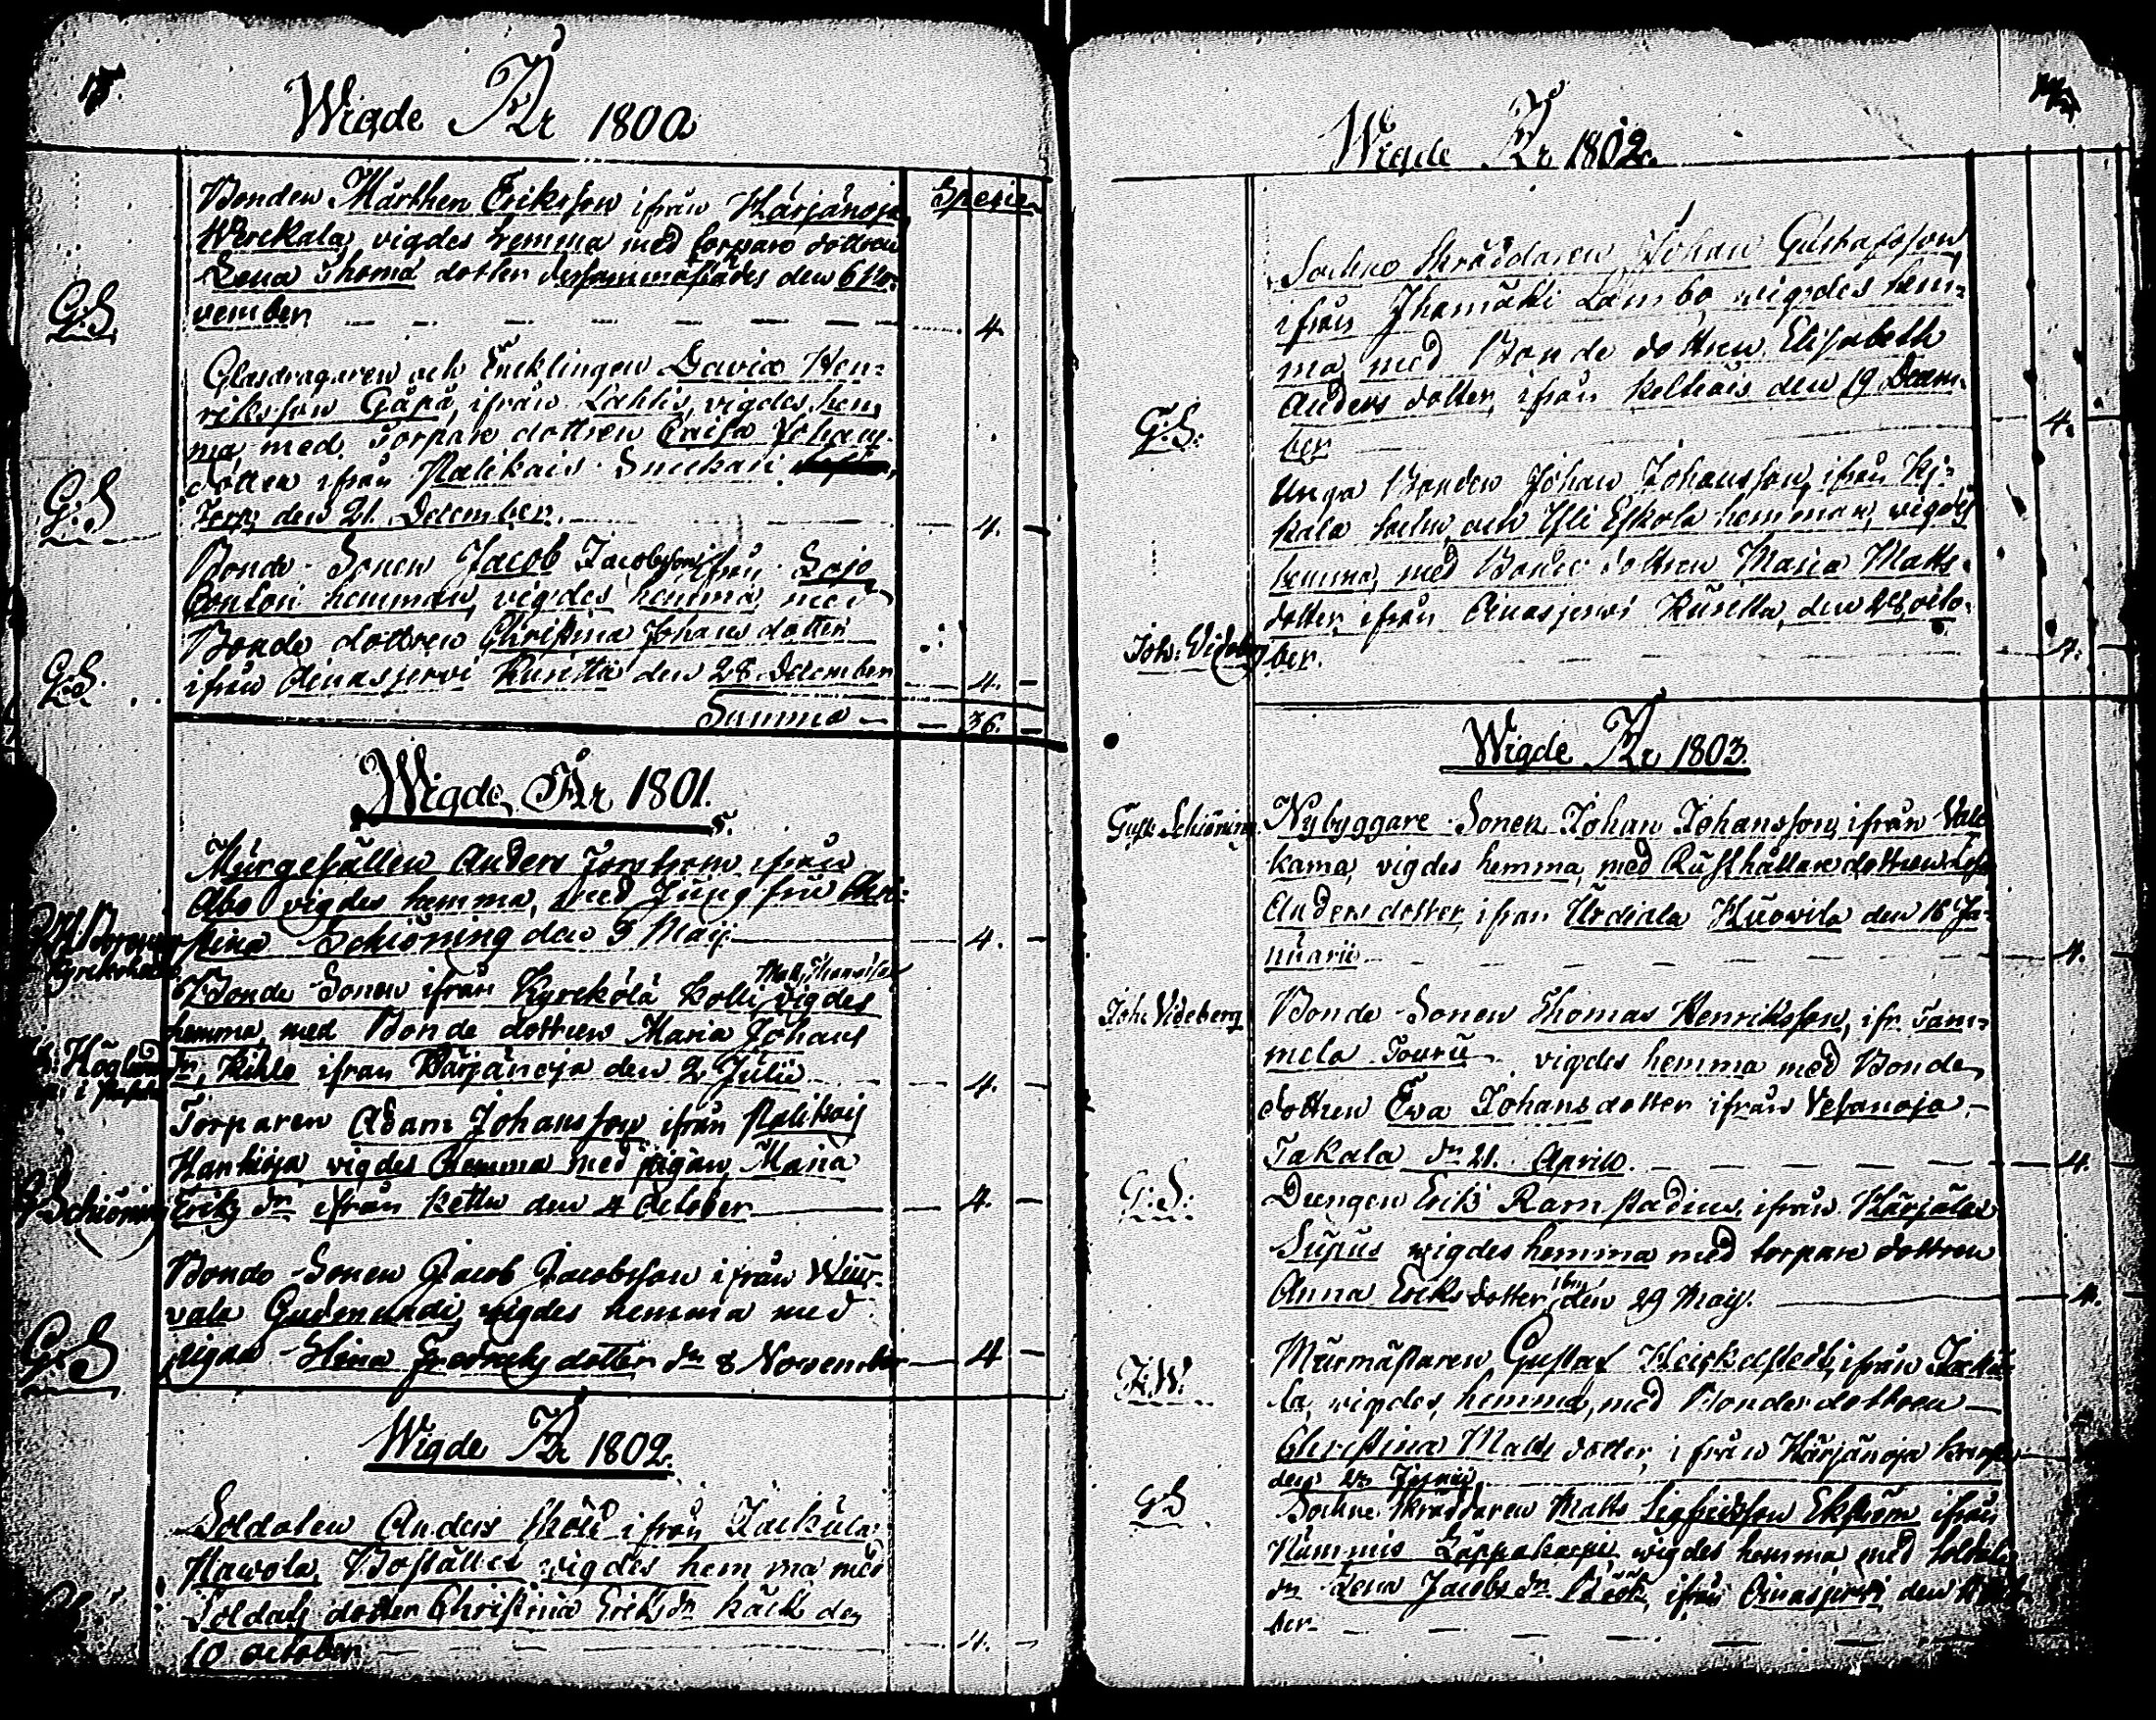 Wigde År 1800
Bonden Mårthen Eriksson ifrån Härjänoja
Werckala, vigdes hemma med torpare dottren
Lena Thomæ dotter dersammastädes den 6 No=
G:S. vember 4.
Specie
Glasdragaren och Encklingen David Hen=
riksson Gåpå, ifrån Lahhis, vigdes hem
ma med Torpare dottren Caisa Johans
dotter ifrån Palikais
G:S Torp, den 21. December. 4. —
Bonde Sonen Jacob Jacobsson ifrån Sojo
hemman, vigdes hemma med
Bonde dottren Christina Johans dotter
G:S. ifrån Ainasjervi Kuritta den 28 December 4. —
Summa — 36. —
Wigde År 1801.
Mürgesällen Anders ifrån
Åbo vigdes hemma, med Jungfru Chri=
stina Schiöning den 5 Maij. 4. —
Bonde Sonen ifrån Kyrckölä Kolli vigdes
hemma, med Bonde dottren Maria Johans
Höglund dr, Kihle ifrån Härjänoja den 2 Julii 4. —
Torparen Adam Johansson ifrån Palikais
Hankioja vigdes hemma med pigan Maria
Schiöning Eriks dr ifrån den 4 October 4. —
Bonde Sonen Jacob Jacobsson ifrån
vala vigdes hemma med
G:S pigan Stina Fredricks dotter dn 8 November 4 —
Wigde År 1802.
Soldaten Anders Sköld ifrån Jackula
Hawola, Bostället vigdes hemma med
Soldats dotter Christina Eriks dr Käck den
10 October 4. —
Wigde År 1802.
Sockne Skräddaren Johan Gustafsson
ifrån Jhamäki Lambo, vigdes hem=
ma, med Bonde dottren Elisabeth
Anders dotter, ifrån Kelhais den 19 Decem=
G:S: ber 4.
Unga Bonden Johan Johansson, ifrån Kj=
kala Sockn och Yli Eskola hemman, vigdes
hemma, med Bonde dottren Maria Matts=
dotter, ifrån Ainasjervi Kuritta, den 28 octo=
Joh: Videberg ber. 4.
Wigde År 1803.
Gust: Schiöning. Nybyggare Sonen Johan Johansson, ifrån
kama, vigdes hemma, med Rusthållare dottren
Anders dotter, ifrån Urdiala Kuovila den 16 Ja=
nuarii 4.
Joh: Videberg Bonde Sonen Thomas Henriksson, ifr. Tam=
mela Tourü vigdes hemma med Bonde
dottren Eva Johans dotter ifrån Vesanoja,
Takala dn 21. Aprill. 4.
G:S: Drengen Erik Ramstadius, ifrån Härjälä
Supus vigdes hemma med torpare dottren
Anna Eriks dotter ibm den 29 Maij. 4.
J:W. Mürmästaren Gustaf ifrån
la, vigdes, hemma, med Bonde dottren
Christina Matts dotter, ifrån Härjänoja
G:S Sockne Skräddaren Matts Sigfridsson Ekström ifrån
Nummis vigdes hemma med Soldats
dr Lena Jacobs dr ifrån Ainasjervi den
ber